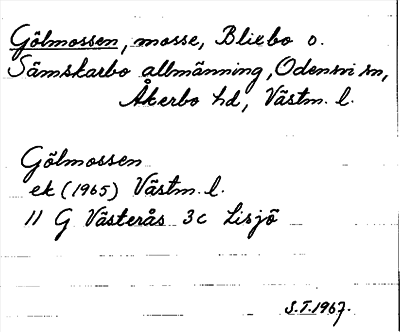 Gölmossen, mosse, Blixbo o.
Sämskarbo allmänning, Odensvi sn,
Åkerbo hd, Västm. l.
Gölmossen
ek (1965) Västm. l.
11 G Västerås 3c Lisjö
S.T.1967.